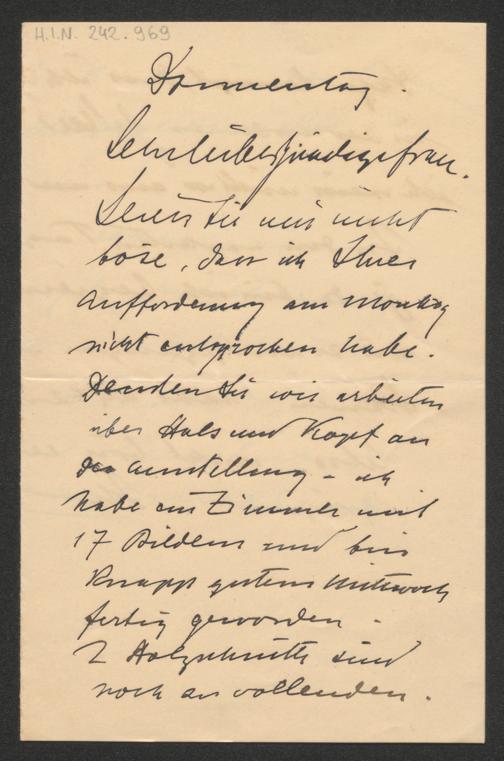 H.I.N. 242.969
Donnerstag.
Sehr liebe gnädige frau.
Seien Sie mir nicht
böse, dass ich Ihrer
Aufforderung am Montag
nicht entsprochen habe.
Denken Sie wir arbeiten
über Hals und Kopf an
der Ausstellung – ich
habe ein Zimmer mit
17 Bildern und bin
knapp gestern Mittwoch
fertig geworden –
2 Holzschnitte sind
noch zu vollenden.